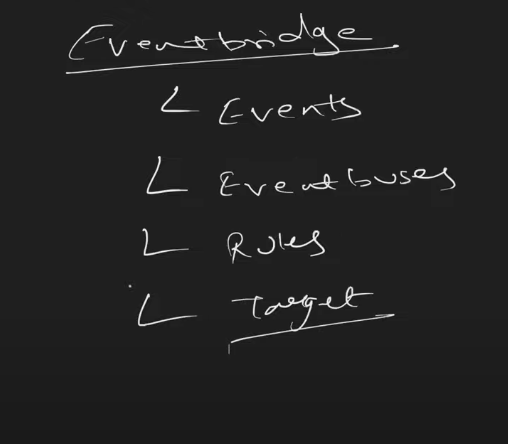 Eventbridge
Events
Eventbuses
Rules
Target